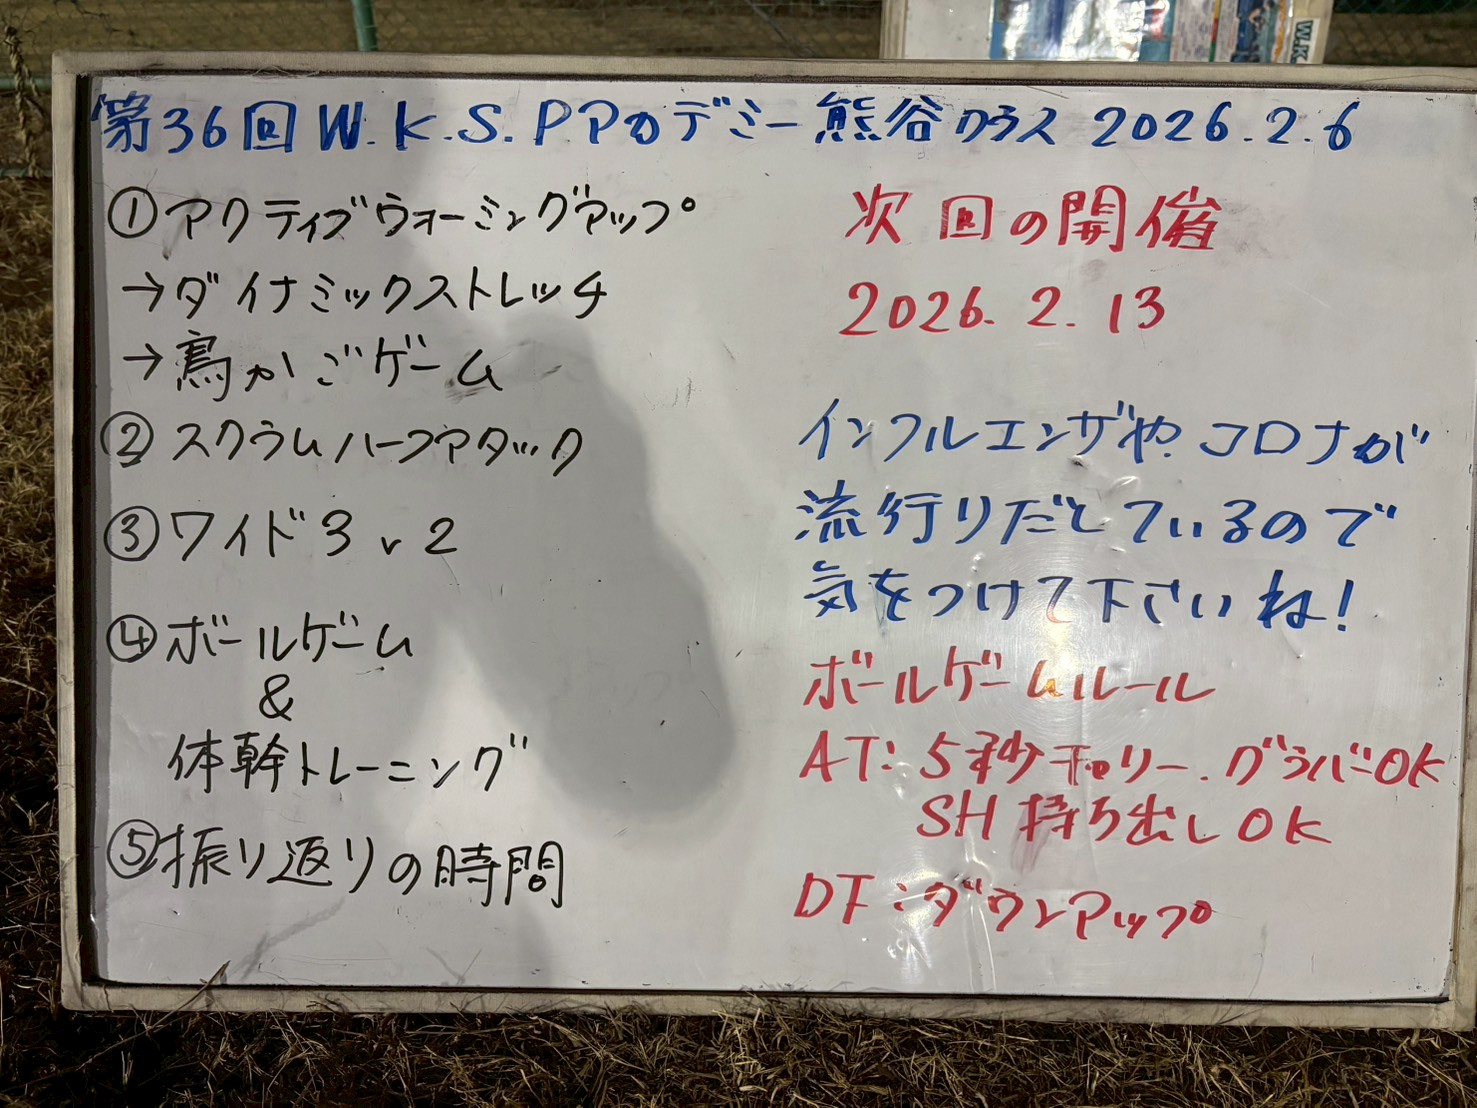 第36回 W.K.S.Pアカデミー熊谷クラス 2026.2.6
①アクティブウォーミングアップ
→ダイナミックストレッチ
→鳥かごゲーム
②スクラムハーフアタック
③ワイド3v2
④ボールゲーム
&
体幹トレーニング
⑤振り返りの時間
次回の開催
2026.2.13
インフルエンザや、コロナが
流行りだしているので
気をつけて下さいね!
ボールゲームルール
AT:5秒キャリー、グラバーOK
SH持ち出しOK
DF:ダウンアップ
W.K